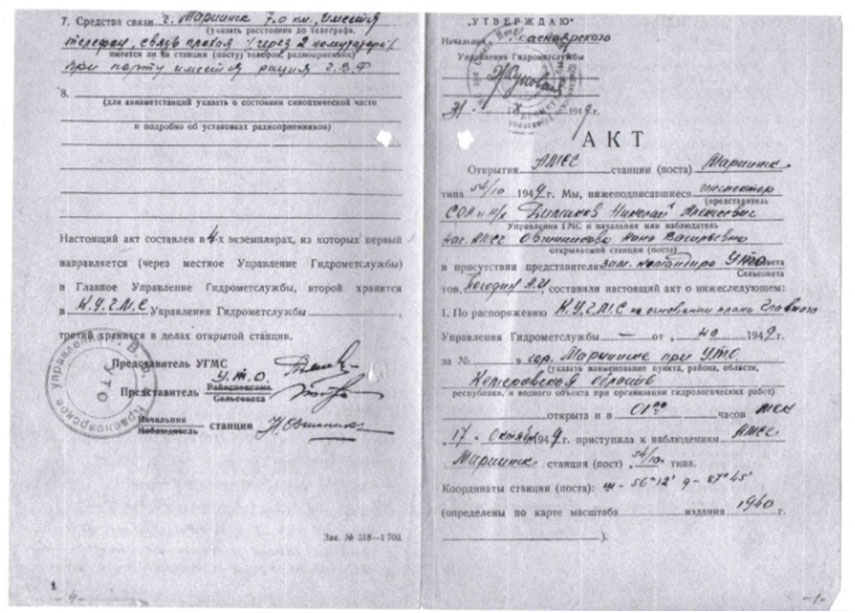 7. Средства связи г. Мариинск 7.0 км, имеется
(указать расстояние до телеграфа,
телефон, связь плохая (через 2 коммутатора)
имеется ли на станции (посту) телефон, радиоприемник)
При порту имеется рация Г.В.Ф
8.
(для авиаметстанций указать о состоянии синоптической части
и подробно об установках радиоприемников)
Настоящий акт составлен в 4-х экземплярах, из которых первый
направляется (через местное Управление Гидрометслужбы)
в Главное Управление Гидрометслужбы, второй хранится
в К.У.Г.М.С Управлении Гидрометслужбы
третий хранится в делах открытой станции.
Представитель УГМС
У.Т.О.
Представитель Райисполкома
Сельсовета
Начальник
Наблюдатель станции
Зак. № 518—1700.
- 4 -
„УТВЕРЖДАЮ“
Начальник Красноярского
Управления Гидрометслужбы
X 1949 г.
АКТ
Открытия АМСС станции (поста) Мариинск
типа 54/10 1949 г. Мы, нижеподписавшиеся инспектор
(представитель
Николай Алексеевич
Управления ГМС и начальник или наблюдатель
нач. АМСС Овчинникова Васильевна
открываемой станции (поста)
в присутствии представителя зам. командира УТО
Сельсовета
тов. Погодин А.И, составили настоящий акт о нижеследующем:
1. По распоряжению К.У.Г.М.С на основании плана Главного
Управления Гидрометслужбы — от 1949 г.
за № в гор. Мариинске при УТО
(указать наименование пункта, района, области,
Кемеровской область
республики, и водного объекта при организации гидрологических работ)
открыта и в 01⁰⁰ часов МСК
17 Октября 1949 г. приступила к наблюдениям АМСС
Мариинск станция (пост) 54/10 типа.
Координаты станции (поста): ш - 56°12' д - 87°45'
(определены по карте масштаба издания 1940 г
).
- 1 -